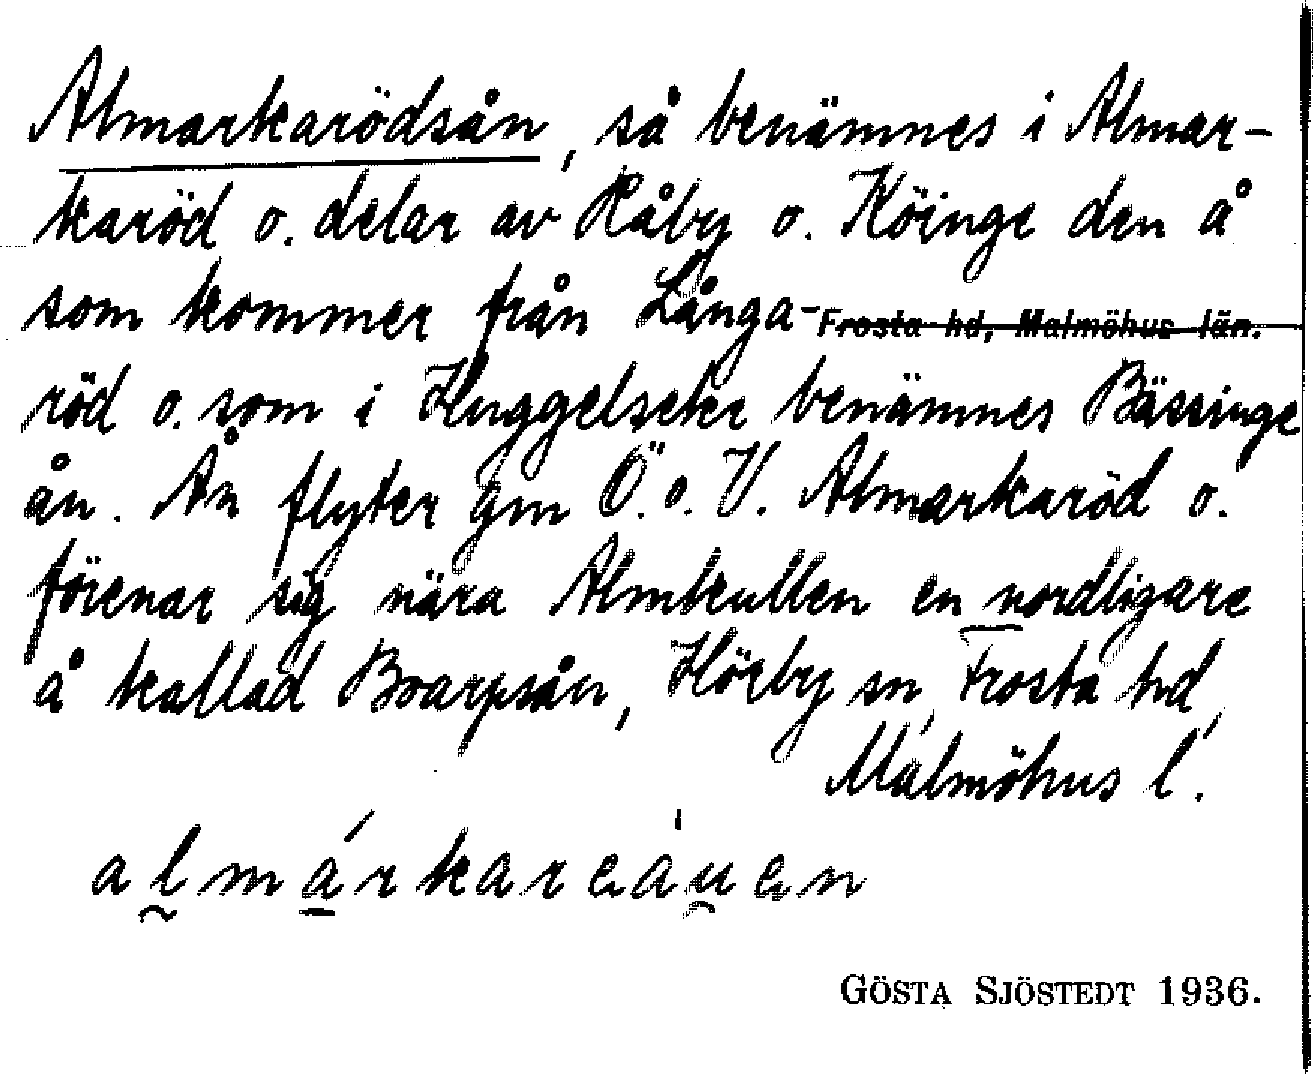 Almarkarödsån, så benämnes i Almar-
karöd o. delar av Råby o. Köinge den å
som kommer från Långa- Frosta hd, Malmöhus län.
röd o. som i Huggelseke benämnes Bässinge
ån. Ån flyter gm Ö. o. V. Almarkaröd o.
förenar sig nära Almkullen en nordligare
å kallad Boarpsån, Hörby sn, Frosta hd,
Malmöhus l.
GÖSTA SJÖSTEDT 1936.